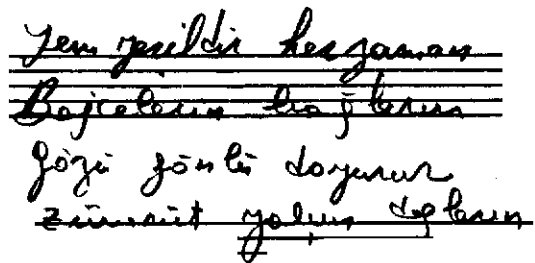 Yem yesildir her zaman
Bahçelerin bağların
Gözü gönlü doyurur
Zümrüt dağların